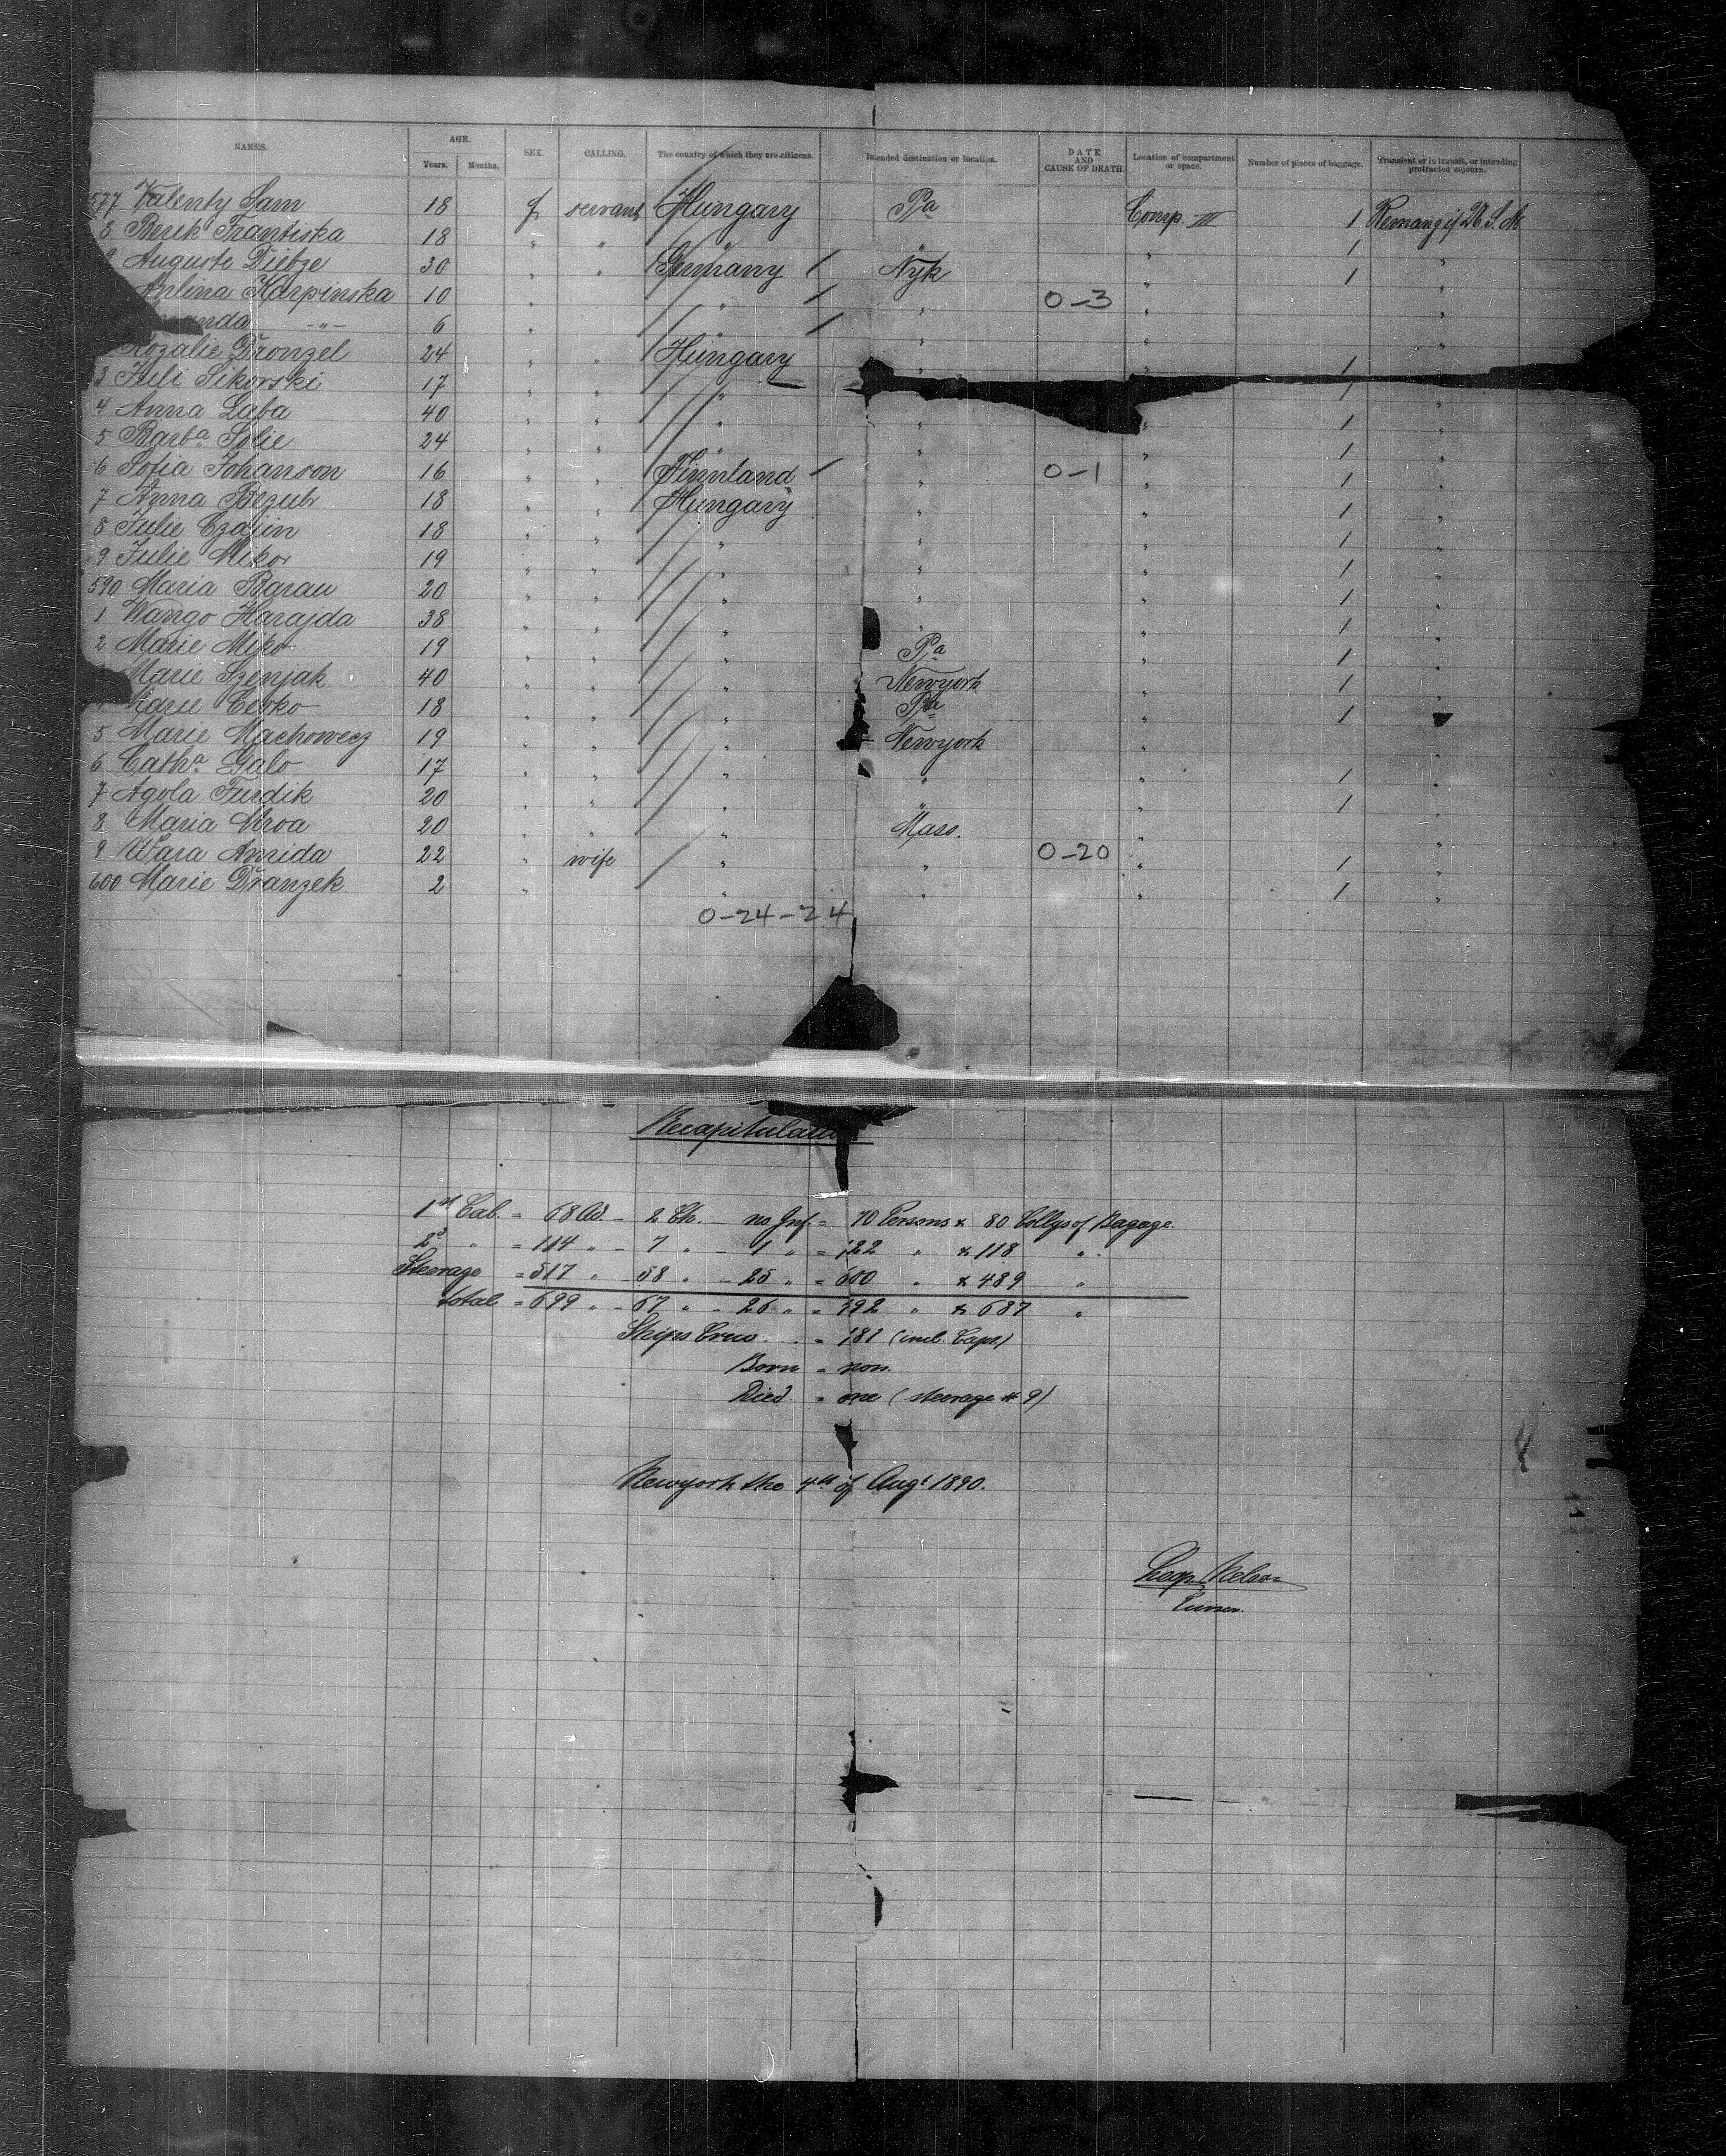 NAMES. AGE. Years. Months. SEX. CALLING. The country of which they are citizens. Intended destination or location. DATE AND CAUSE OF DEATH. Location of compartment or space. Number of pieces of baggage. Transient or in transit, or intending protracted sojourn.
577 Valenty Sam 18 f servant Hungary Pa Comp. III 1
8 Berek Frantiska 18 " " " " " 1 "
9 Auguste Dietze 30 " " Germany / Nyk " 1 "
Karpinska 10 " " / " 0-3 " "
anda -"- 6 " / " " "
Rozalie Dronzel 24 " " Hungary " " 1
3 Juli Sikorski 17 " " " 1 "
4 Anna Laba 40 " " " " " 1 "
5 Barba Solie 24 " " " " " 1 "
6 Sofia Johanson 16 " " Finnland / " 0-1 " 1 "
7 Anna Bezub 18 " " Hungary " " 1 "
8 Julie Czajin 18 " " " " " 1 "
9 Julie Mikor 19 " " " " " 1 "
590 Maria Barau 20 " " " " " 1 "
1 Wango Harajda 38 " " " " " 1 "
2 Marie Miko 19 " " " Pa " 1 "
Marie Szenjak 40 " " " Newyork " 1 "
Marie Cesko 18 " " " Pa " 1
5 Marie Machowecz 19 " " " Newyork " "
6 Catha Galo 17 " " " " " 1 "
7 Agola Furdik 20 " " " " " 1 "
8 Maria Mroa 20 " " " Mass. " "
9 Wara Amrida 22 " wife " " 0-20 " 1 "
600 Marie Dranzek 2 " " " " 1 "
0-24-24
Recapitulation
1st Cab. = 68 Ad. - 2 Ch. - no Inf = 70 Persons & 80 Collys of Bagage.
2d " = 114 " - 7 " - 1 " = 122 " & 118 "
Steerage = 517 " - 58 " - 25 " = 600 " & 489 "
total = 699 " - 67 " - 26 " = 792 " & 687 "
Ships Crew = 181 (incl. Capt)
Born = non.
Died = one (steerage # 9)
Newyork the 4th of Augt 1890.